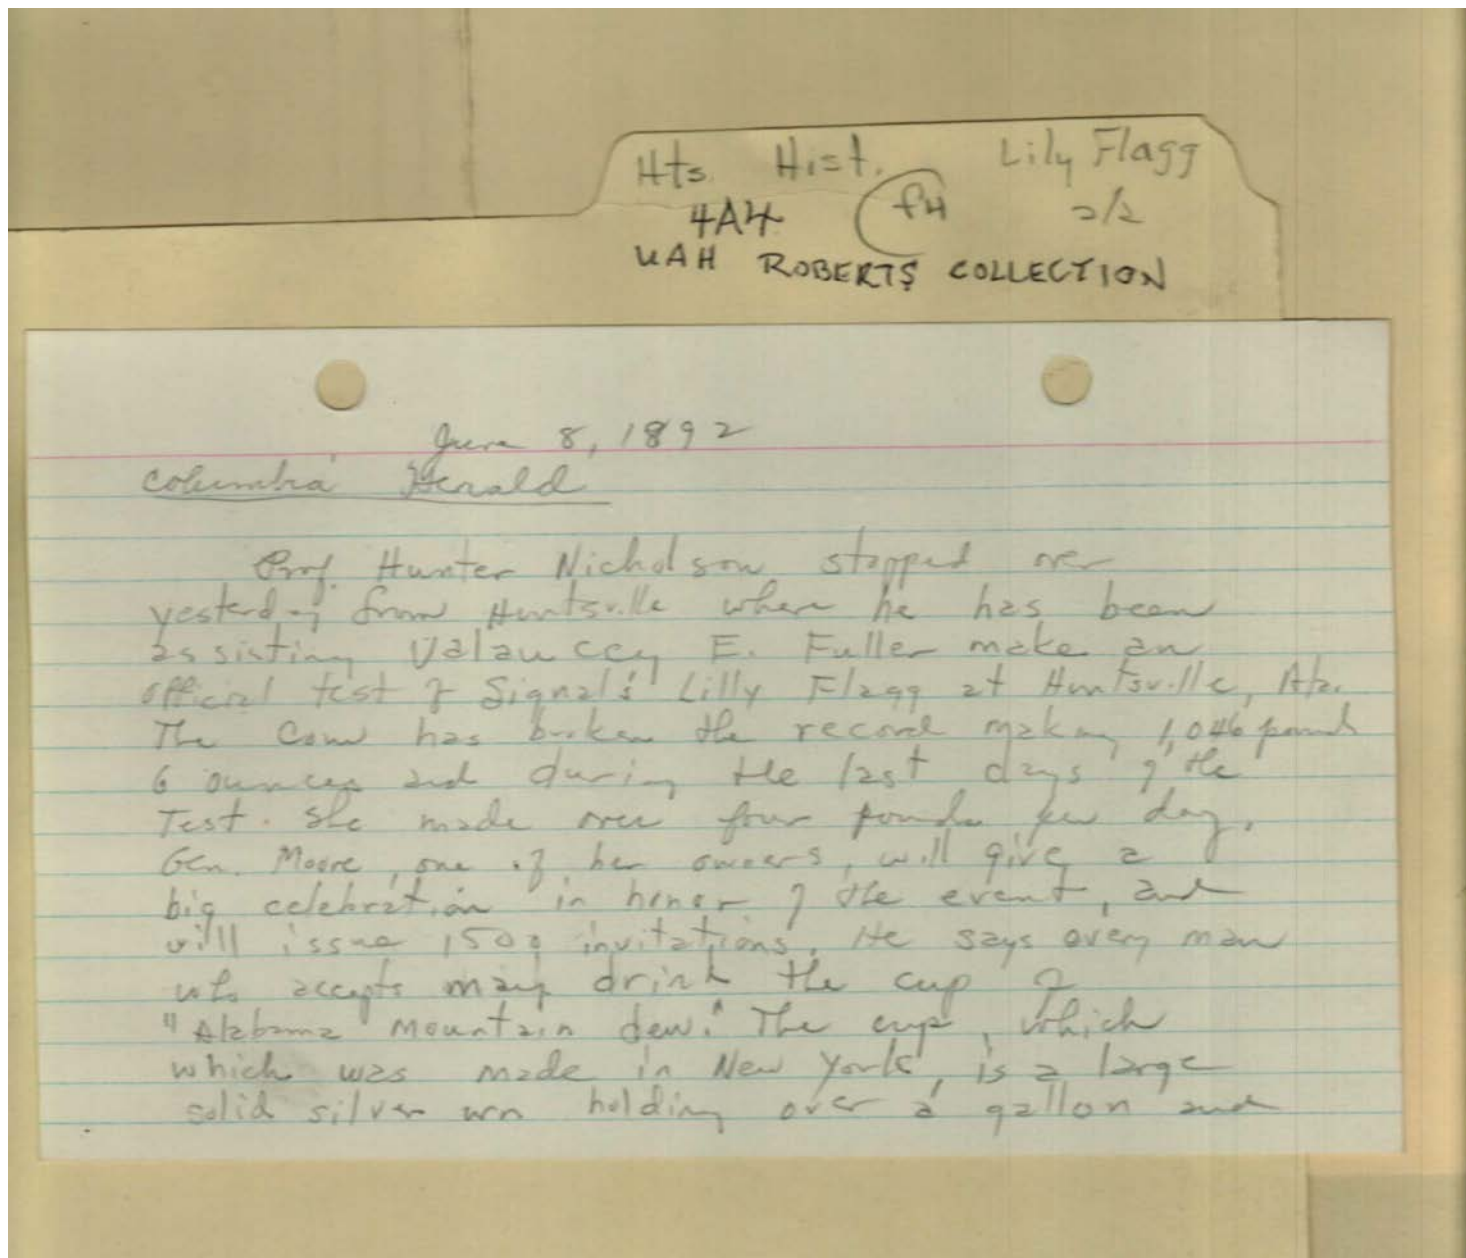 Hts. Hist. Lily Flagg
4A4 fH 2/2
UAH ROBERTS COLLECTION
June 8, 1892
Columbia Herald
Prof. Hunter Nicholson stopped over
yesterday from Huntsville where he has been
assisting Valancey E. Fuller make an
official test of Signal's Lilly Flagg at Huntsville, Ala.
The Cow has broken the record making 1,046 pounds
6 ounces and during the last days of the
Test. She made over four pounds per day.
Gen. Moore, one of her owners, will give a
big celebration in honor of the event, and
will issue 1500 invitations. He says every man
who accepts may drink the cup of
"Alabama Mountain dew." The cup, which
which was made in New York, is a large
solid silver urn holding over a gallon and